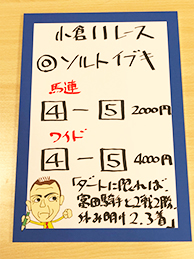 小倉11レース
◎ソルトイブキ
馬連
4-5 2000円
ワイド
4-5 4000円
「ダートに限れば、
富田騎手と2戦2勝。
休み明け2.3着」